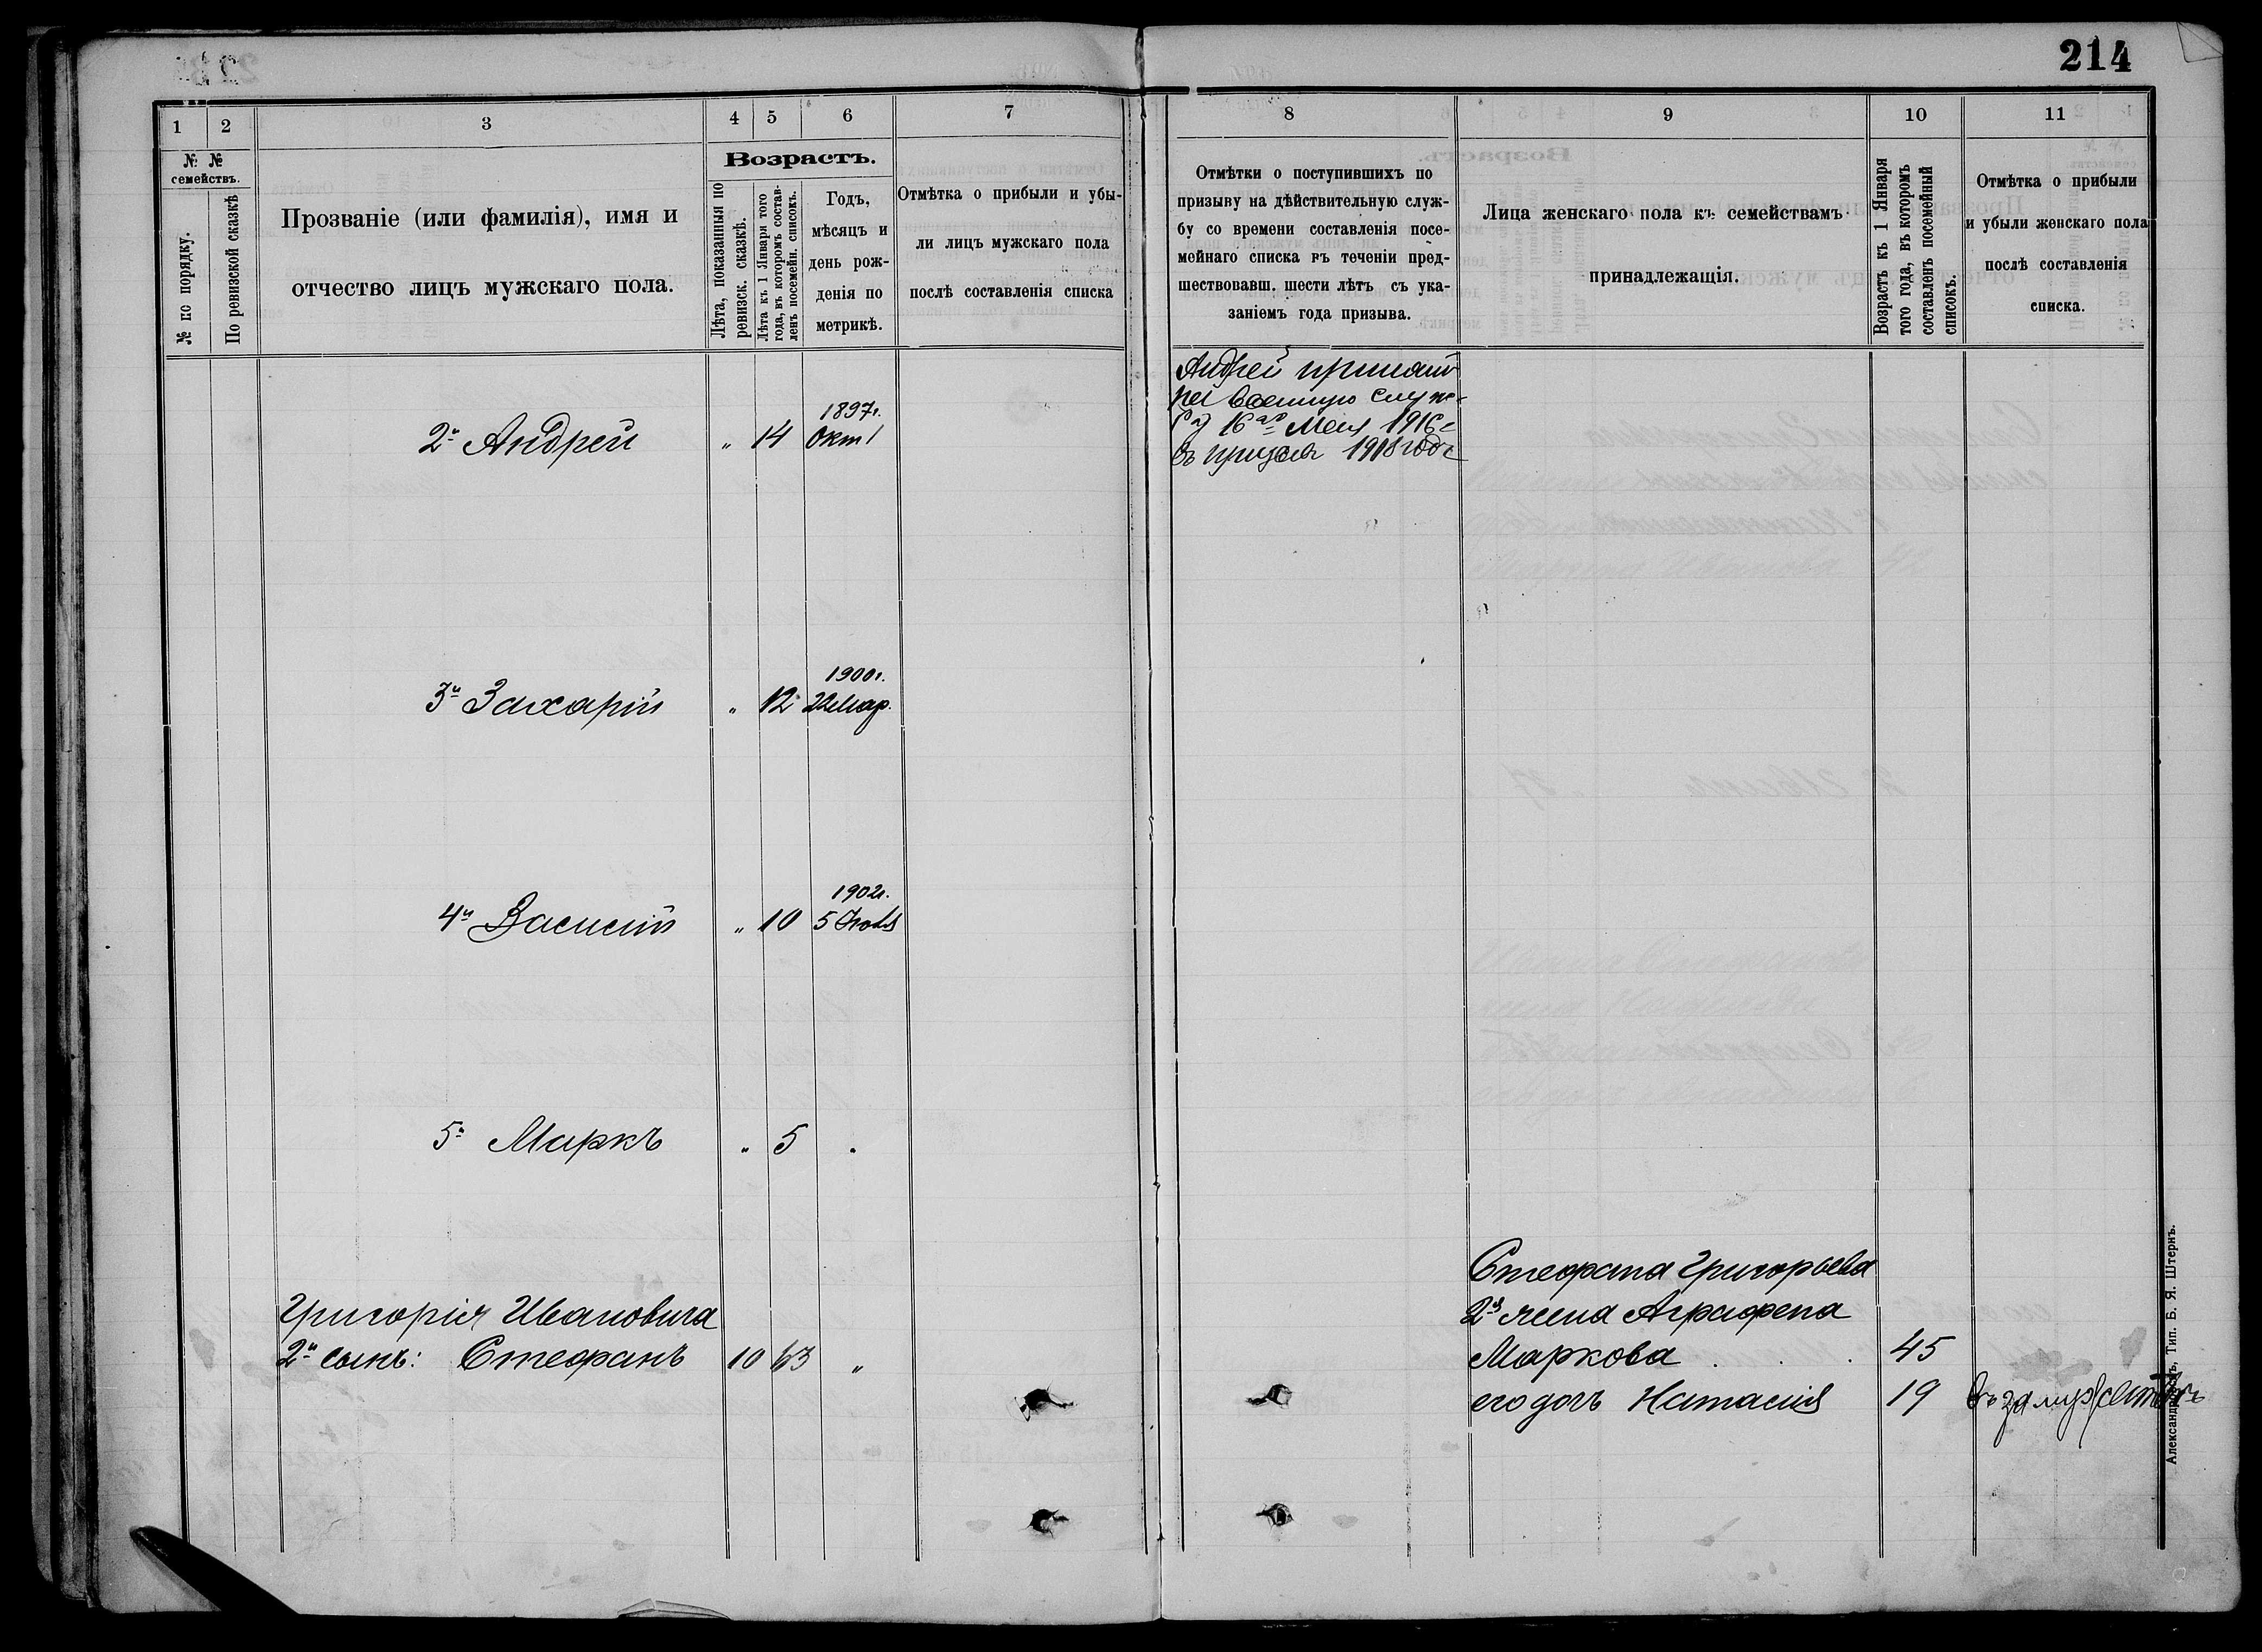 214
1 2 3 4 5 6 7
№ № семействъ.
№ по порядку.
По ревизской сказкѣ
Прозваніе (или фамилія), имя и
отчество лицъ мужскаго пола.
Возрастъ.
Лѣта, показанныя по
ревизск. сказкѣ.
Лѣта къ 1 Января того
года, въ которомъ состав-
ленъ посемейн. списокъ.
Годъ,
мѣсяцъ и
день рож-
денія по
метрикѣ.
Отмѣтка о прибыли и убы-
ли лицъ мужскаго пола
послѣ составленія списка
2й Андрей „ 14 1897г.
Окт 1
3й Захарій „ 12 1900г.
22 Мар.
4й Василій „ 10 1902г.
5
5й Маркъ „ 5 „
Григорія Ивановича
2й сынъ: Стефанъ 10 63 „
8 9 10 11
Отмѣтки о поступившихъ по
призыву на дѣйствительную служ-
бу со времени составленія посе-
мейнаго списка въ теченіи пред-
шествовавш. шести лѣтъ съ ука-
заніемъ года призыва.
Лица женскаго пола къ семействамъ
принадлежащія.
Возрастъ къ 1 Января
того года, въ которомъ
составленъ посемейный
списокъ.
Отмѣтка о прибыли
и убыли женскаго пола
послѣ составленія
списка.
Андрей принятъ
на военную служ-
бу 16го Мая 1916г
въ призывъ 1918 года
Стефана Григорьева
2я жена Аграфена
Маркова . . . 45
его дочь Наталія 19 въ замужествѣ
Александровскъ, Тип. Б. Я. Штернъ.